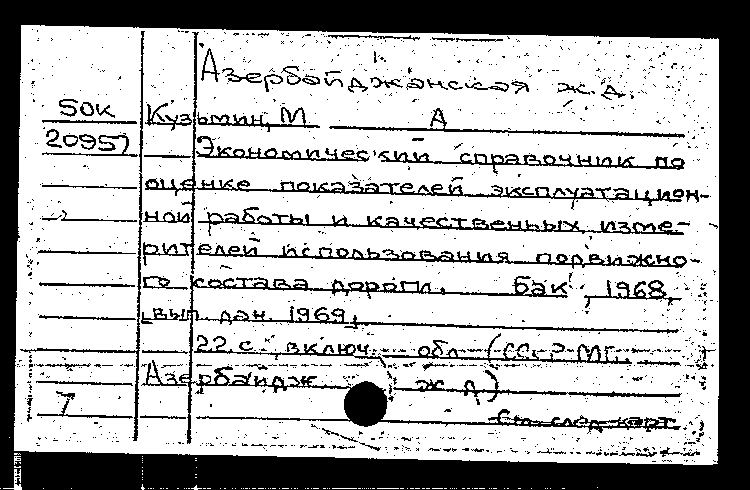 Азербайджанская ж.д.
50к Кузьмин, М А
20957 Экономический справочник по
оценке показателей эксплуатацион-
ной работы и качественных изме-
рителей использования подвижно-
го состава дороги. Бак, 1968,
[вып. дан. 1969]
22 с., включ. обл. (СССР МПС.
Азербайдж. ж д)
7 См. след. карт.